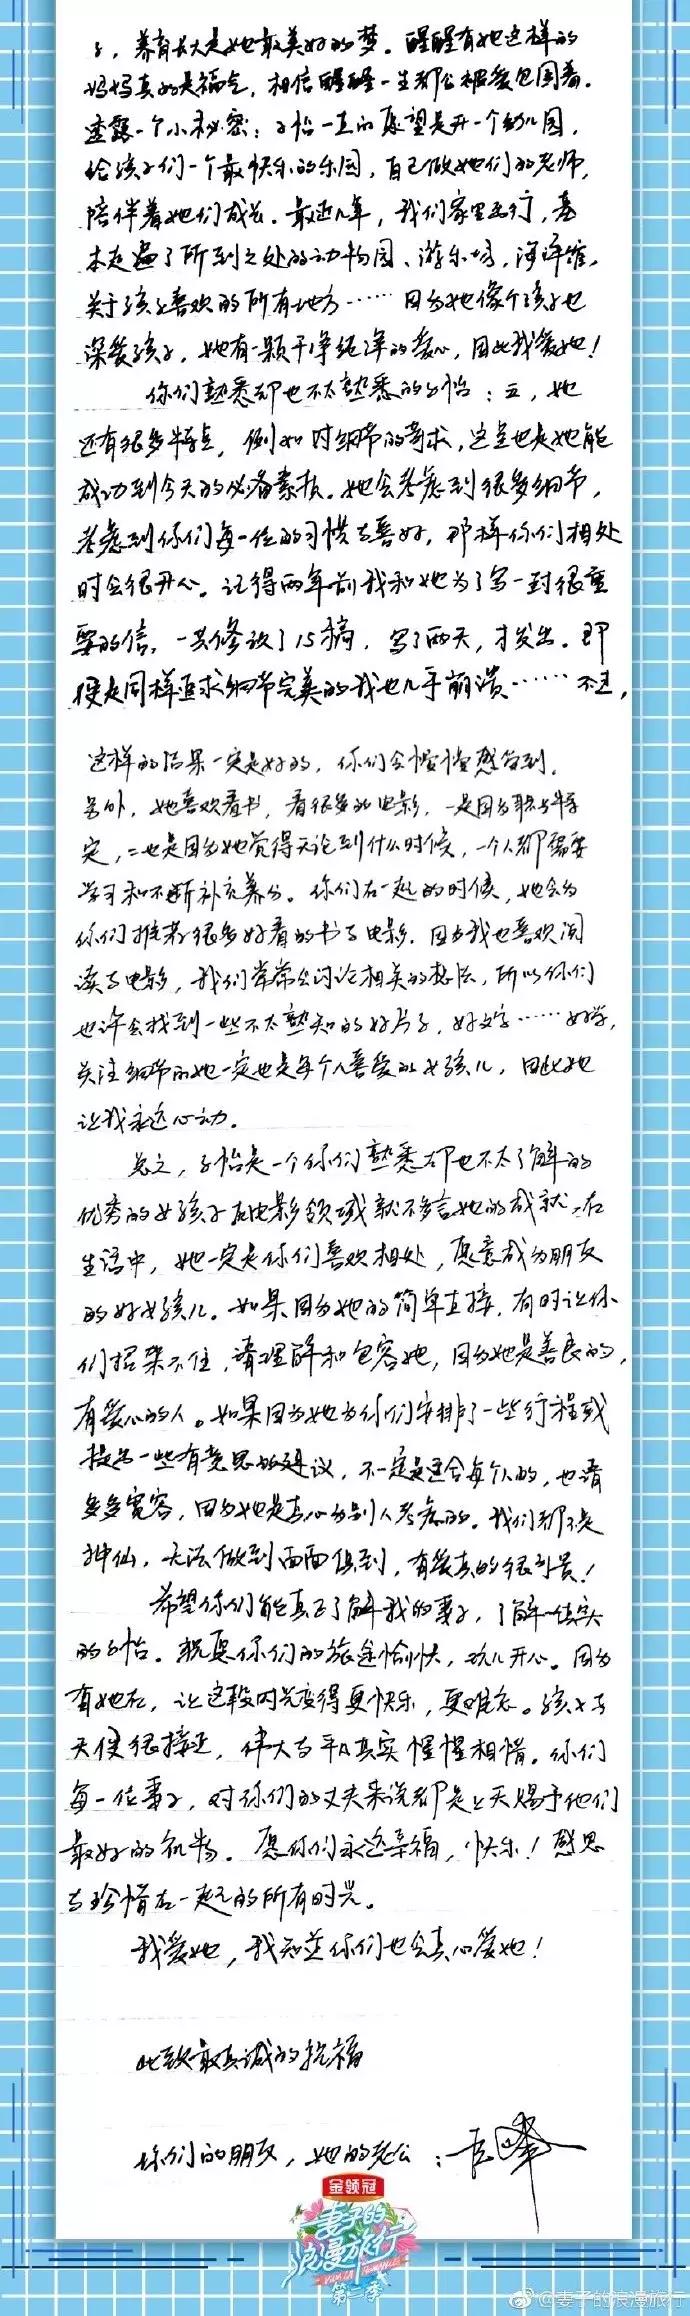 子，养育长大是她最美好的梦。醒醒有她这样的
妈妈真的是福气，相信醒醒一生都会被爱包围着。
透露一个小秘密：子怡一直的愿望是开一个幼儿园，
给孩子们一个最快乐的乐园，自己做她们的老师，
陪伴着她们成长。最近几年，我们家里出行，基
本走遍了所到之处的动物园、游乐场，海洋馆，
关于孩子喜欢的所有地方……因为她像个孩子也
深爱孩子，她有一颗干净纯净的爱心，因此我爱她！
你们熟悉却也不太熟悉的子怡：五，她
还有很多特点，例如对细节的苛求，这是也是她能
成功到今天的必备素材。她会考虑到很多细节，
考虑到你们每一位的习惯与喜好，那样你们相处
时会很开心。记得两年前我和她为了写一封很重
要的信，一共修改了15稿，写了两天，才发出。即
使是同样追求细节完美的我也几乎崩溃……不过，
这样的结果一定是好的，你们会慢慢感受到。
另外，她喜欢看书，看很多的电影，一是因为职业特
定，二也是因为她觉得无论到什么时候，一个人都需要
学习和不断补充养分。你们在一起的时候，她会为
你们推荐很多好看的书与电影，因为我也喜欢阅
读与电影，我们常常会讨论相关的想法，所以你们
也许会找到一些不太熟知的好片子，好文字……好学，
关注细节的她一定也是每个人喜爱的女孩儿，因此她
让我永远心动。
总之，子怡是一个你们熟悉却也不太了解的
优秀的女孩子在电影领域就不多言她的成就，在
生活中，她一定是你们喜欢相处，愿意成为朋友
的好女孩儿。如果因为她的简单直接，有时让你
们招架不住，请理解和包容她，因为她是善良的，
有爱心的人。如果因为她为你们安排了一些行程或
提出一些有意思的建议，不一定是适合每个人的，也请
多多宽容，因为她是真心为别人考虑的。我们都不是
神仙，无法做到面面俱到，有爱真的很可贵！
希望你们能真正了解我的妻子，了解一位真实
的子怡。祝愿你们的旅途愉快，玩儿开心。因为
有她在，让这段时光变得更快乐，更难忘。孩子与
天使很接近，伟大与平凡其实惺惺相惜。你们
每一位妻子，对你们的丈夫来说都是上天赐予他们
最好的礼物。愿你们永远幸福，快乐！感恩
与珍惜在一起的所有时光。
我爱她，我知道你们也会真心爱她！
此致最真诚的祝福
你们的朋友，她的老公：汪峰
金领冠
妻子的
浪漫旅行
VIVA LA ROMANCE
第二季
@妻子的浪漫旅行